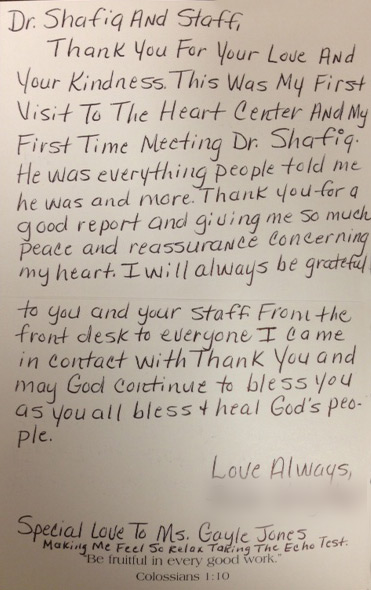 Dr. Shafiq And Staff,
Thank You For Your Love And
Your Kindness. This Was My First
Visit To The Heart Center And My
First Time Meeting Dr. Shafiq.
He was everything people told me
he was and more. Thank you for a
good report and giving me so much
peace and reassurance concerning
my heart. I will always be grateful
to you and your staff From the
front desk to everyone I came
in contact with Thank You and
may God continue to bless you
as you all bless & heal God's peo-
ple.
Love Always,
Special Love To Ms. Gayle Jones
Making Me Feel So Relax Taking The Echo Test.
"Be fruitful in every good work."
Colossians 1:10